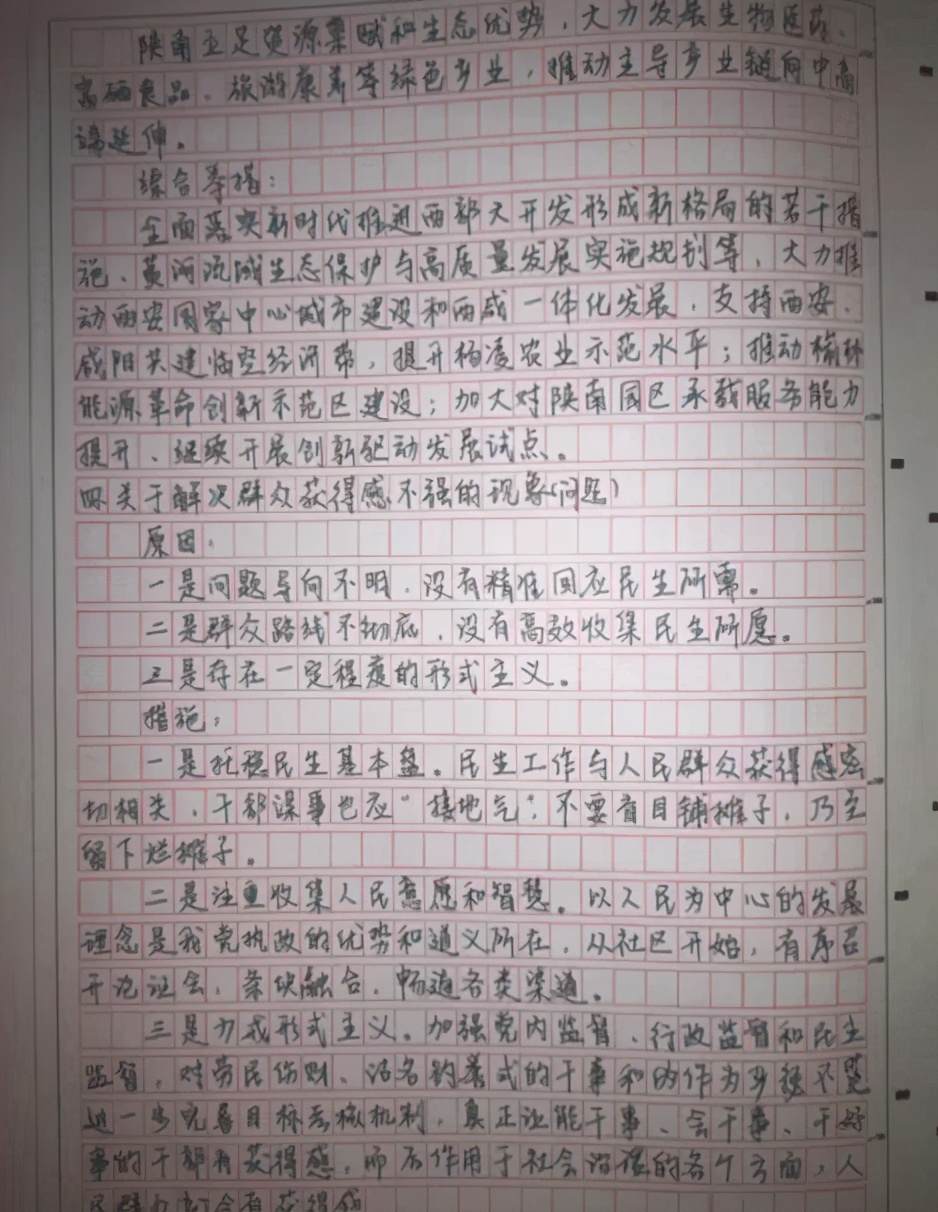 陕南立足资源禀赋和生态优势，大力发展生物医药、
富硒食品、旅游康养等绿色产业，推动主导产业链向中高
端延伸。
综合举措：
全面落实新时代推进西部大开发形成新格局的若干措
施、黄河流域生态保护与高质量发展实施规划等，大力推
动西安国家中心城市建设和西咸一体化发展，支持西安、
咸阳共建临空经济带，提升杨凌农业示范水平；推动榆林
能源革命创新示范区建设；加大对陕南园区承载服务能力
提升、继续开展创新驱动发展试点。
四关于解决群众获得感不强的现象(问题)
原因：
一是问题导向不明，没有精准回应民生所需。
二是群众路线不彻底，没有高效收集民生所愿。
三是存在一定程度的形式主义。
措施：
一是托稳民生基本盘。民生工作与人民群众获得感密
切相关，干部谋事也应“接地气”，不要盲目铺摊子，乃至
留下烂摊子。
二是注重收集人民意愿和智慧。以人民为中心的发展
理念是我党执政的优势和道义所在，从社区开始，有序召
开论证会，条块融合，畅通各类渠道。
三是力戒形式主义。加强党内监督、行政监督和民主
监督，对劳民伤财、沽名钓誉式的干事和
进一步完善目标考核机制，真正让能干事、会干事、干好
事的干部有获得感，而后作用于社会治理的各个方面，人